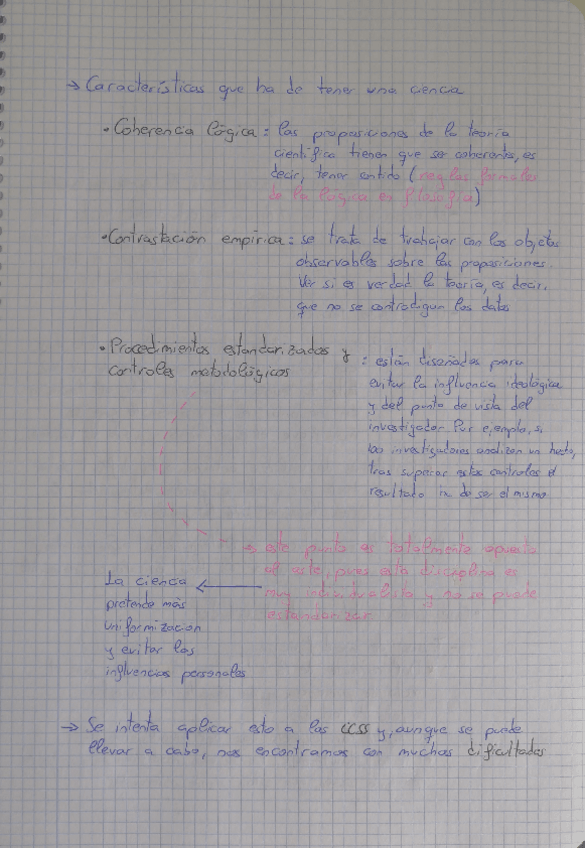 → Características que ha de tener una ciencia
• Coherencia lógica: las proposiciones de la teoría
científica tienen que ser coherentes, es
decir, tener entido (reglas formales
de la lógica en filosofía)
• Contrastación empírica: se trata de trabajar con los objetos
observables sobre las proposiciones.
Ver si es verdad la teoría, es decir,
que no se contradigan los datos
• Procedimientos estandarizados y
controles metodológicos
: están diseñados para
evitar la influencia ideológica
y del punto de vista del
investigador. Por ejemplo, si
100 investigadores analizen un hecho,
tras superar estos controles el
resultado ha de ser el mismo
→ este punto es totalmente opuesto
al arte, pues esta disciplina es
muy individualista y no se puede
estandarizar
La ciencia ←
pretende más
uniformización
y evitar las
influencias personales
→ Se intenta aplicar esto a las CCSS y, aunque se puede
llevar a cabo, nos encontramos con muchas dificultades